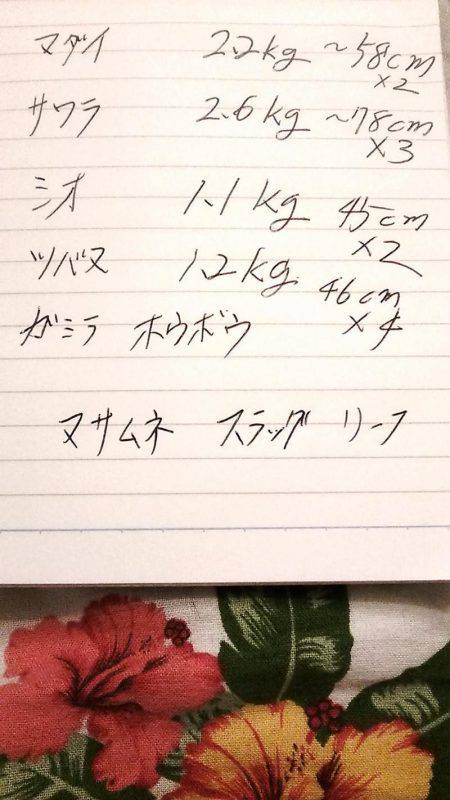 マダイ 2.2kg ~58cm
×2
サワラ 2.6kg ~78cm
×3
シオ 1.1kg 45cm
×2
ツバス 1.2kg 46cm
×4
ガシラ ホウボウ
マサムネ スラッグ リーフ